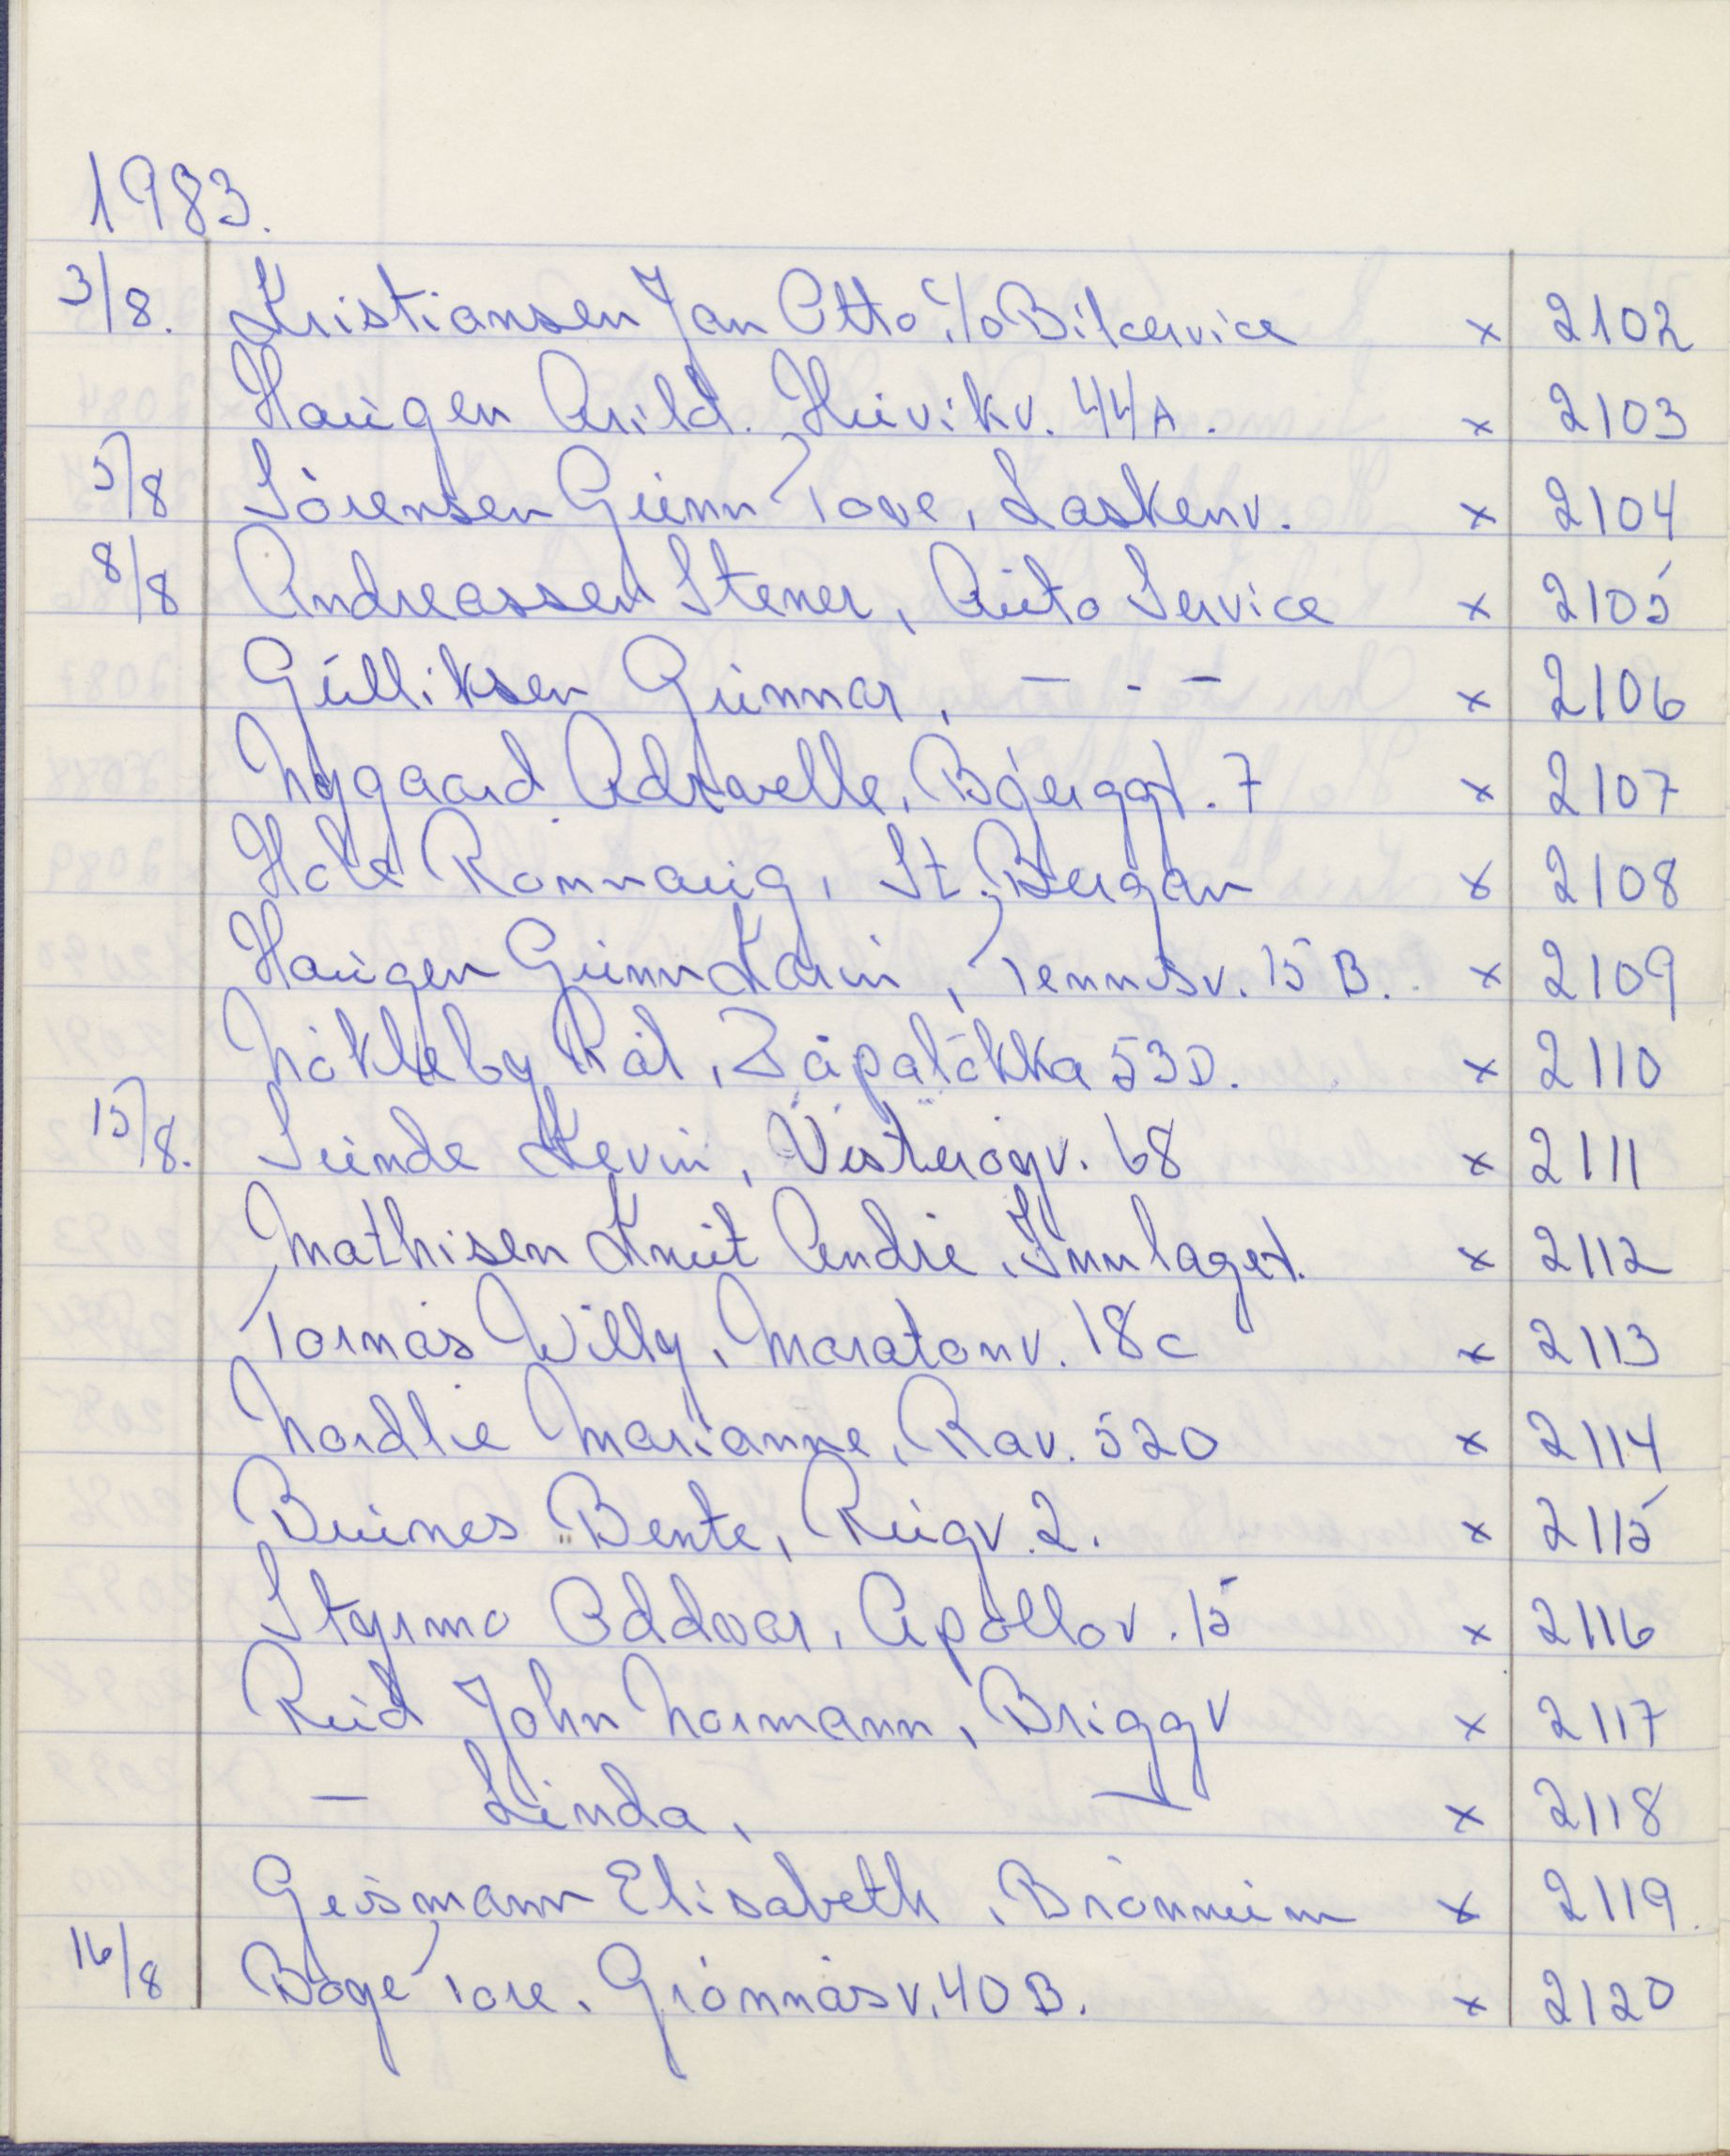 1983.
3/8. Kristiansen Jan Otto c/o Bilcervice x 2102
Haugen Arild. Huvikv. 44A. x 2103
5/8 Sörensen Gunn Tove, Laskenv. x 2104
8/8 Andreassen Stener, Auto Service x 2105
Gulliksen Gunnar, — - — x 2106
Nygaard, Börggt. 7 x 2107
Hole Ronnaug, St. Bergan x 2108
Haugen Gunn Karin, Tennisv. 15 B. x 2109
Nökleby Pål, Zapalökka 53D. x 2110
15/8. Sunde Kevin, Vesterøyv. 68 x 2111
Mathisen Knut Andre, Innlaget. x 2112
Tornås Willy, Maratonv. 18c x 2113
Nordlie Marianne, Rav. 520 x 2114
Buines Bente, Rugv. 2. x 2115
Styrmo Oddvar, Apollov. 15 x 2116
Reid John Normann, Briggv x 2117
— Linda, — x 2118
Geismann Elisabeth, Brönnum x 2119.
16/8 Bøge Tore. Grönnåsv. 40 B. x 2120